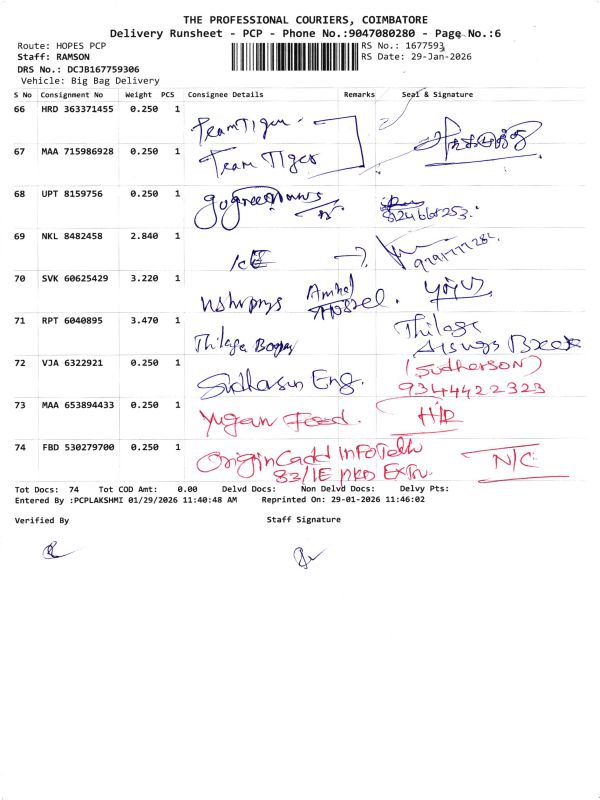 THE PROFESSIONAL COURIERS, COIMBATORE
Delivery Runsheet - PCP - Phone No.:9047080280 - Page No.:6
Route: HOPES PCP
RS No.: 1677593
Staff: RAMSON
RS Date: 29-Jan-2026
DRS No.: DCJB167759306
Vehicle: Big Bag Delivery
S No Consignment No Weight PCS Consignee Details Remarks Seal & Signature
66 HRD 363371455 0.250 1 Team Tiger
67 MAA 715986928 0.250 1 Team Tiger
68 UPT 8159756 0.250 1
69 NKL 8482458 2.840 1
70 SVK 60625429 3.220 1
71 RPT 6040895 3.470 1 Thilaga Thilaga
72 VJA 6322921 0.250 1 Sudharsun Eng. (Sudherson)
9344422323
73 MAA 653894433 0.250 1 Yugan Food.
74 FBD 530279700 0.250 1 Origin Cadd Infotech N/C
83/1E
Tot Docs: 74 Tot COD Amt: 0.00 Delvd Docs: Non Delvd Docs: Delvy Pts:
Entered By :PCPLAKSHMI 01/29/2026 11:40:48 AM Reprinted On: 29-01-2026 11:46:02
Verified By Staff Signature